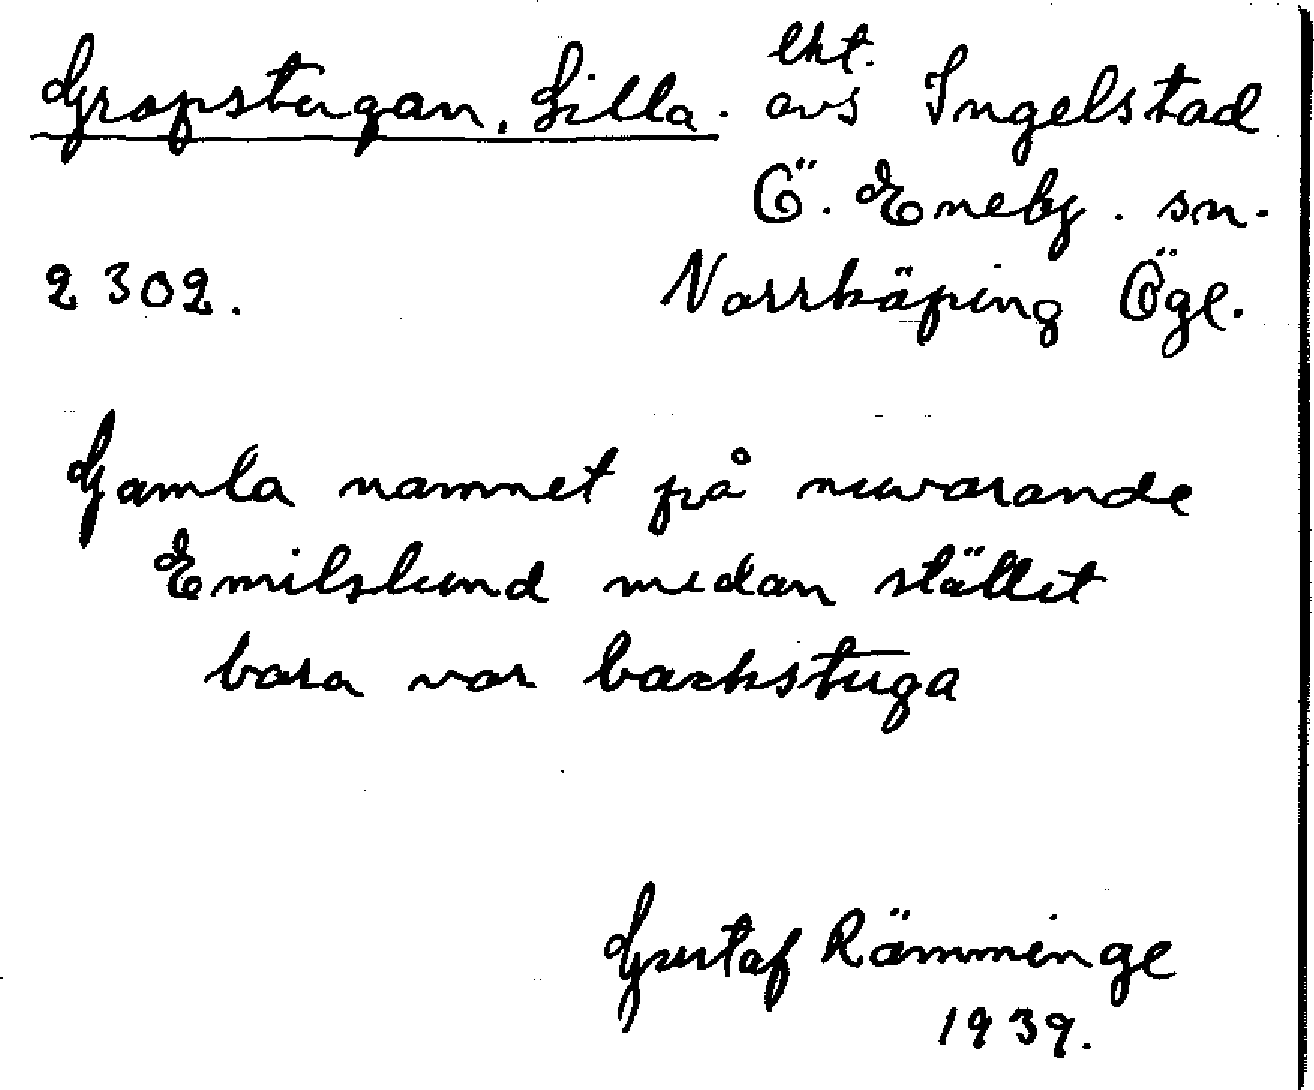 Gropstugan, Lilla. lht.
avs Ingelstad
Ö. Eneby. sn.
2302. Norrköping Ögl.
Gamla namnet på nuvarande
Emilslund medan stället
bara var backstuga
Gustaf Rämminge
1939.